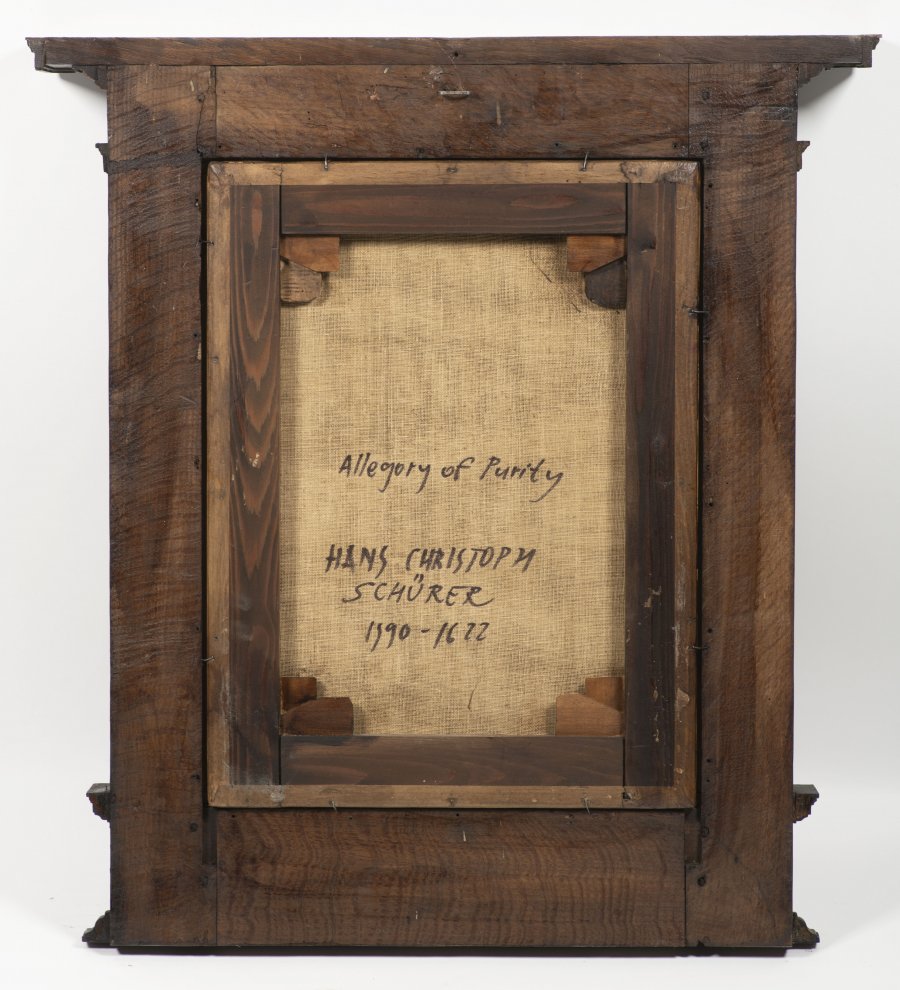 Allegory of Purity
HANS CHRISTOPH
SCHÜRER
1590-1622